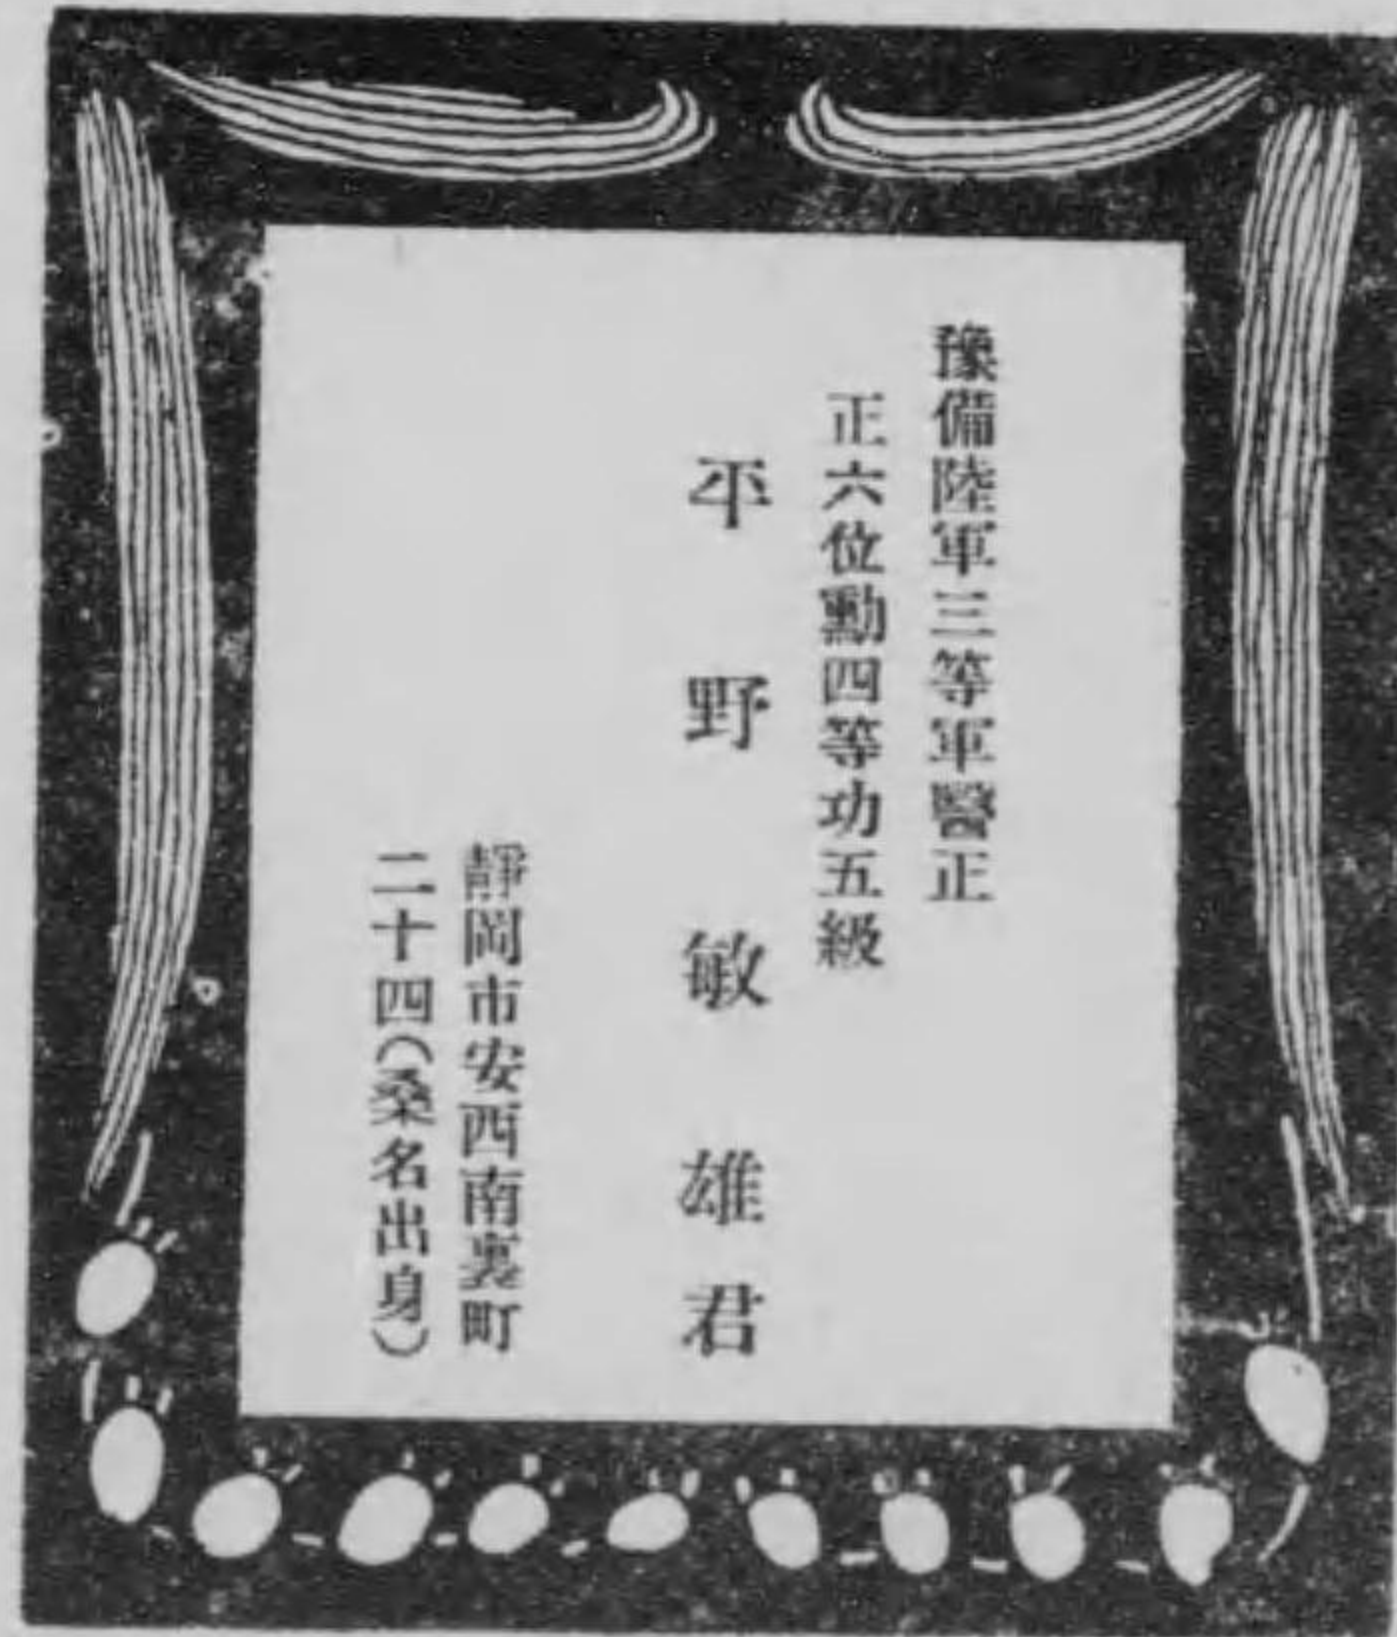 豫備陸軍三等軍醫正
正六位勳四等功五級
平野敏雄君
靜岡市安西南裏町
二十四(桑名出身)